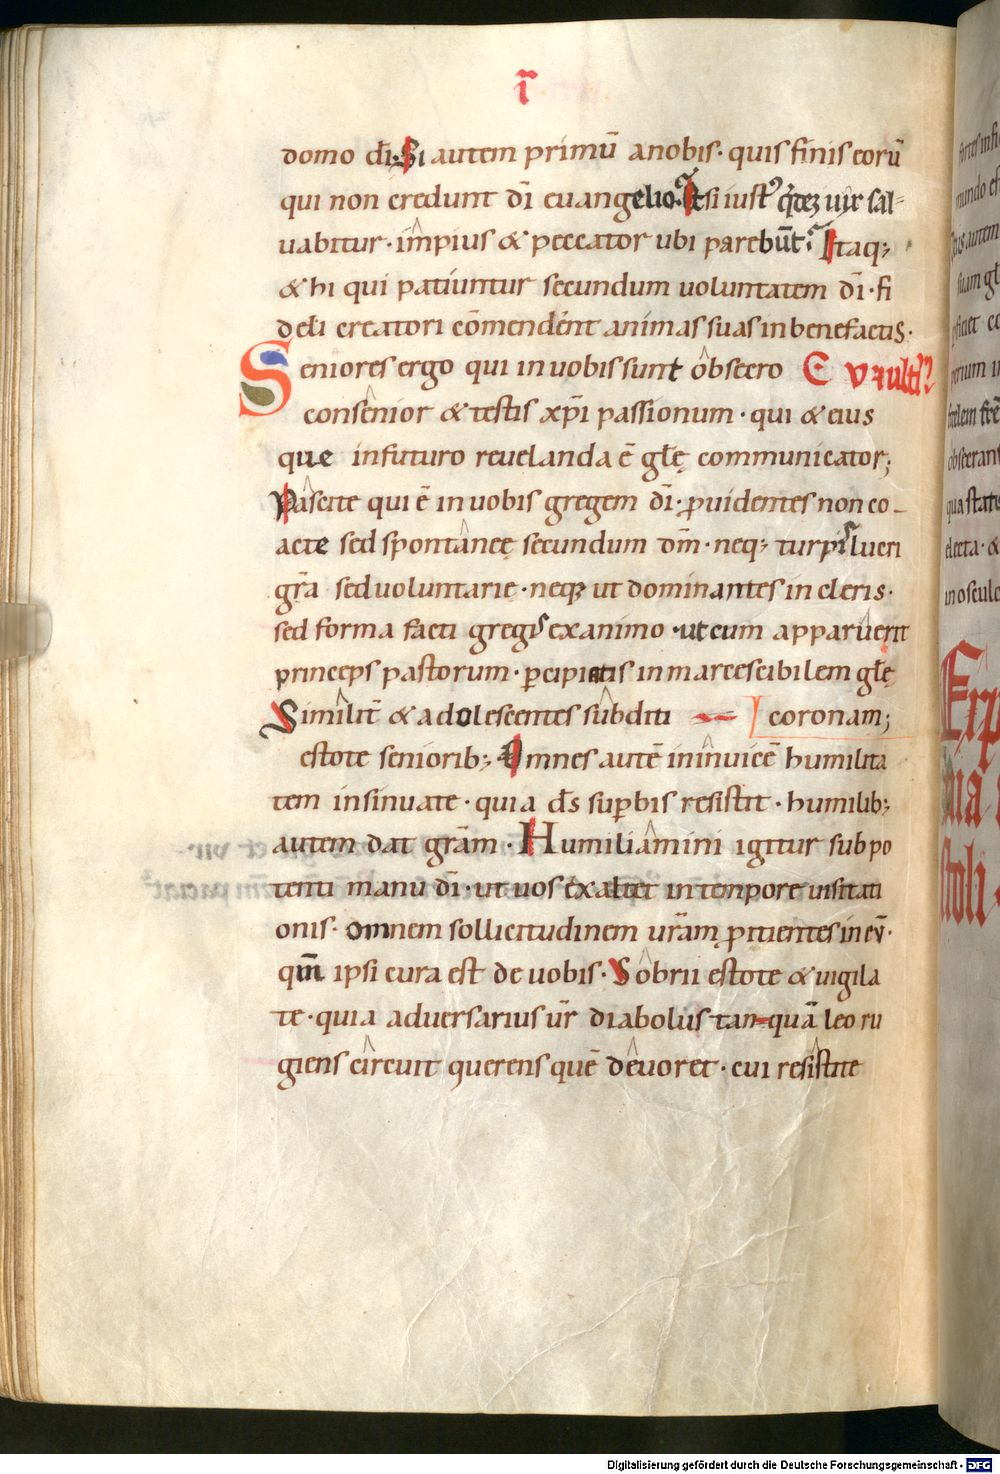 ī
domo dī· Si autem primū anobis· quis finis eorū
qui non credunt dī euangelio· Etsi iust᾽ qꝺez uix sal-
uabitur· impius & peccator ubi parebūt; Itaq;
& hi qui patiuntur secundum uoluntatem dī· fi
deli creatori cōmendent animas suas in benefactis·
Seniores ergo qui in uobis sunt obsecro C V
consenior & testis xp̄i passionum· qui & eius
que in futuro reuelanda ē glē communicator;
Pascite qui ē in uobis gregem dī· ꝓuidentes non co-
acte sed spontanee secundum dm̄· neq; turpis lucri
gr̄a sed uoluntarie· neq; ut dominantes in cleris·
sed forma facti gregis ex animo· ut cum apparuerit
princeps pastorum· ꝑcipietis inmarcescibilem glē
Similit̄ & adolescentes subditi coronam;
estote seniorib; Omnes autē ininuicē humilita
tem insinuate· quia ds̄ suꝑbis resistit· humilib;
autem dat gr̄am· Humiliamini igitur sub po
tenti manu dī· ut uos exaltet in tempore uisitati
onis· omnem sollicitudinem ur̄am ꝓitientes in eū·
qm̄ ipsi cura est de uobis· Sobrii estote & uigila
te· quia aduersarius ur̄ diabolus tan-quā leo ru
giens circuit querens quē deuoret· cui resistite
Digitalisierung gefördert durch die Deutsche Forschungsgemeinschaft - DFG